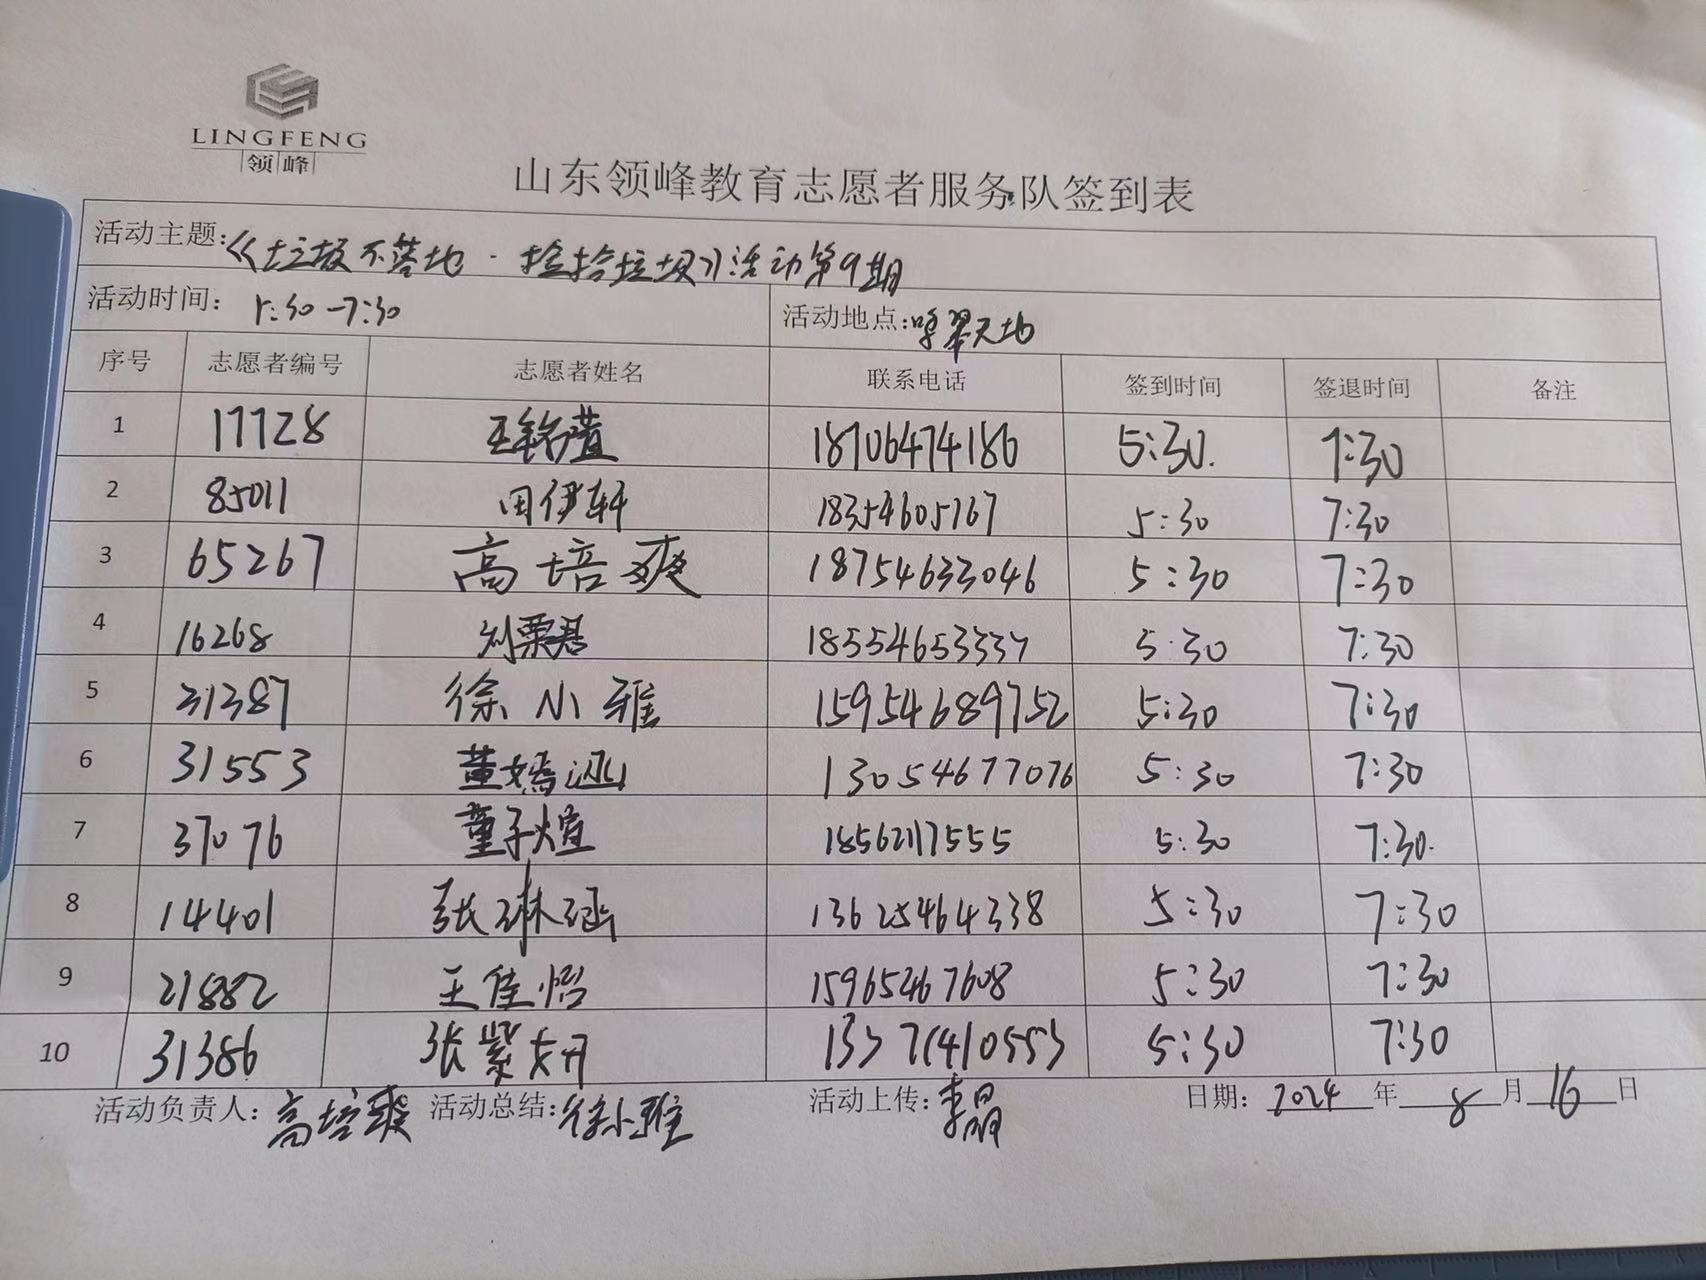 LINGFENG
领峰
山东领峰教育志愿者服务队签到表
活动主题:《垃圾不落地·捡拾垃圾》活动第9期
活动时间: 5:30-7:30 活动地点: 天地
序号 志愿者编号 志愿者姓名 联系电话 签到时间 签退时间 备注
1 17728 王铭萱 18706474186 5:30. 7:30
2 85011 田伊轩 18354605767 5:30 7:30
3 65267 高培爽 18754633046 5:30 7:30
4 16268 刘栗君 18554653337 5:30 7:30
5 31387 徐小雅 15954689752 5:30 7:30
6 31553 董嫣涵 13054677076 5:30 7:30
7 37076 董子煊 18562117555 5:30 7:30.
8 14401 张琳涵 13625464338 5:30 7:30
9 21882 王佳怡 15965467608 5:30 7:30
10 31386 张紫妍 13371410553 5:30 7:30
活动负责人: 高培爽 活动总结: 徐小雅 活动上传: 李晶 日期: 2024 年 8 月 16 日